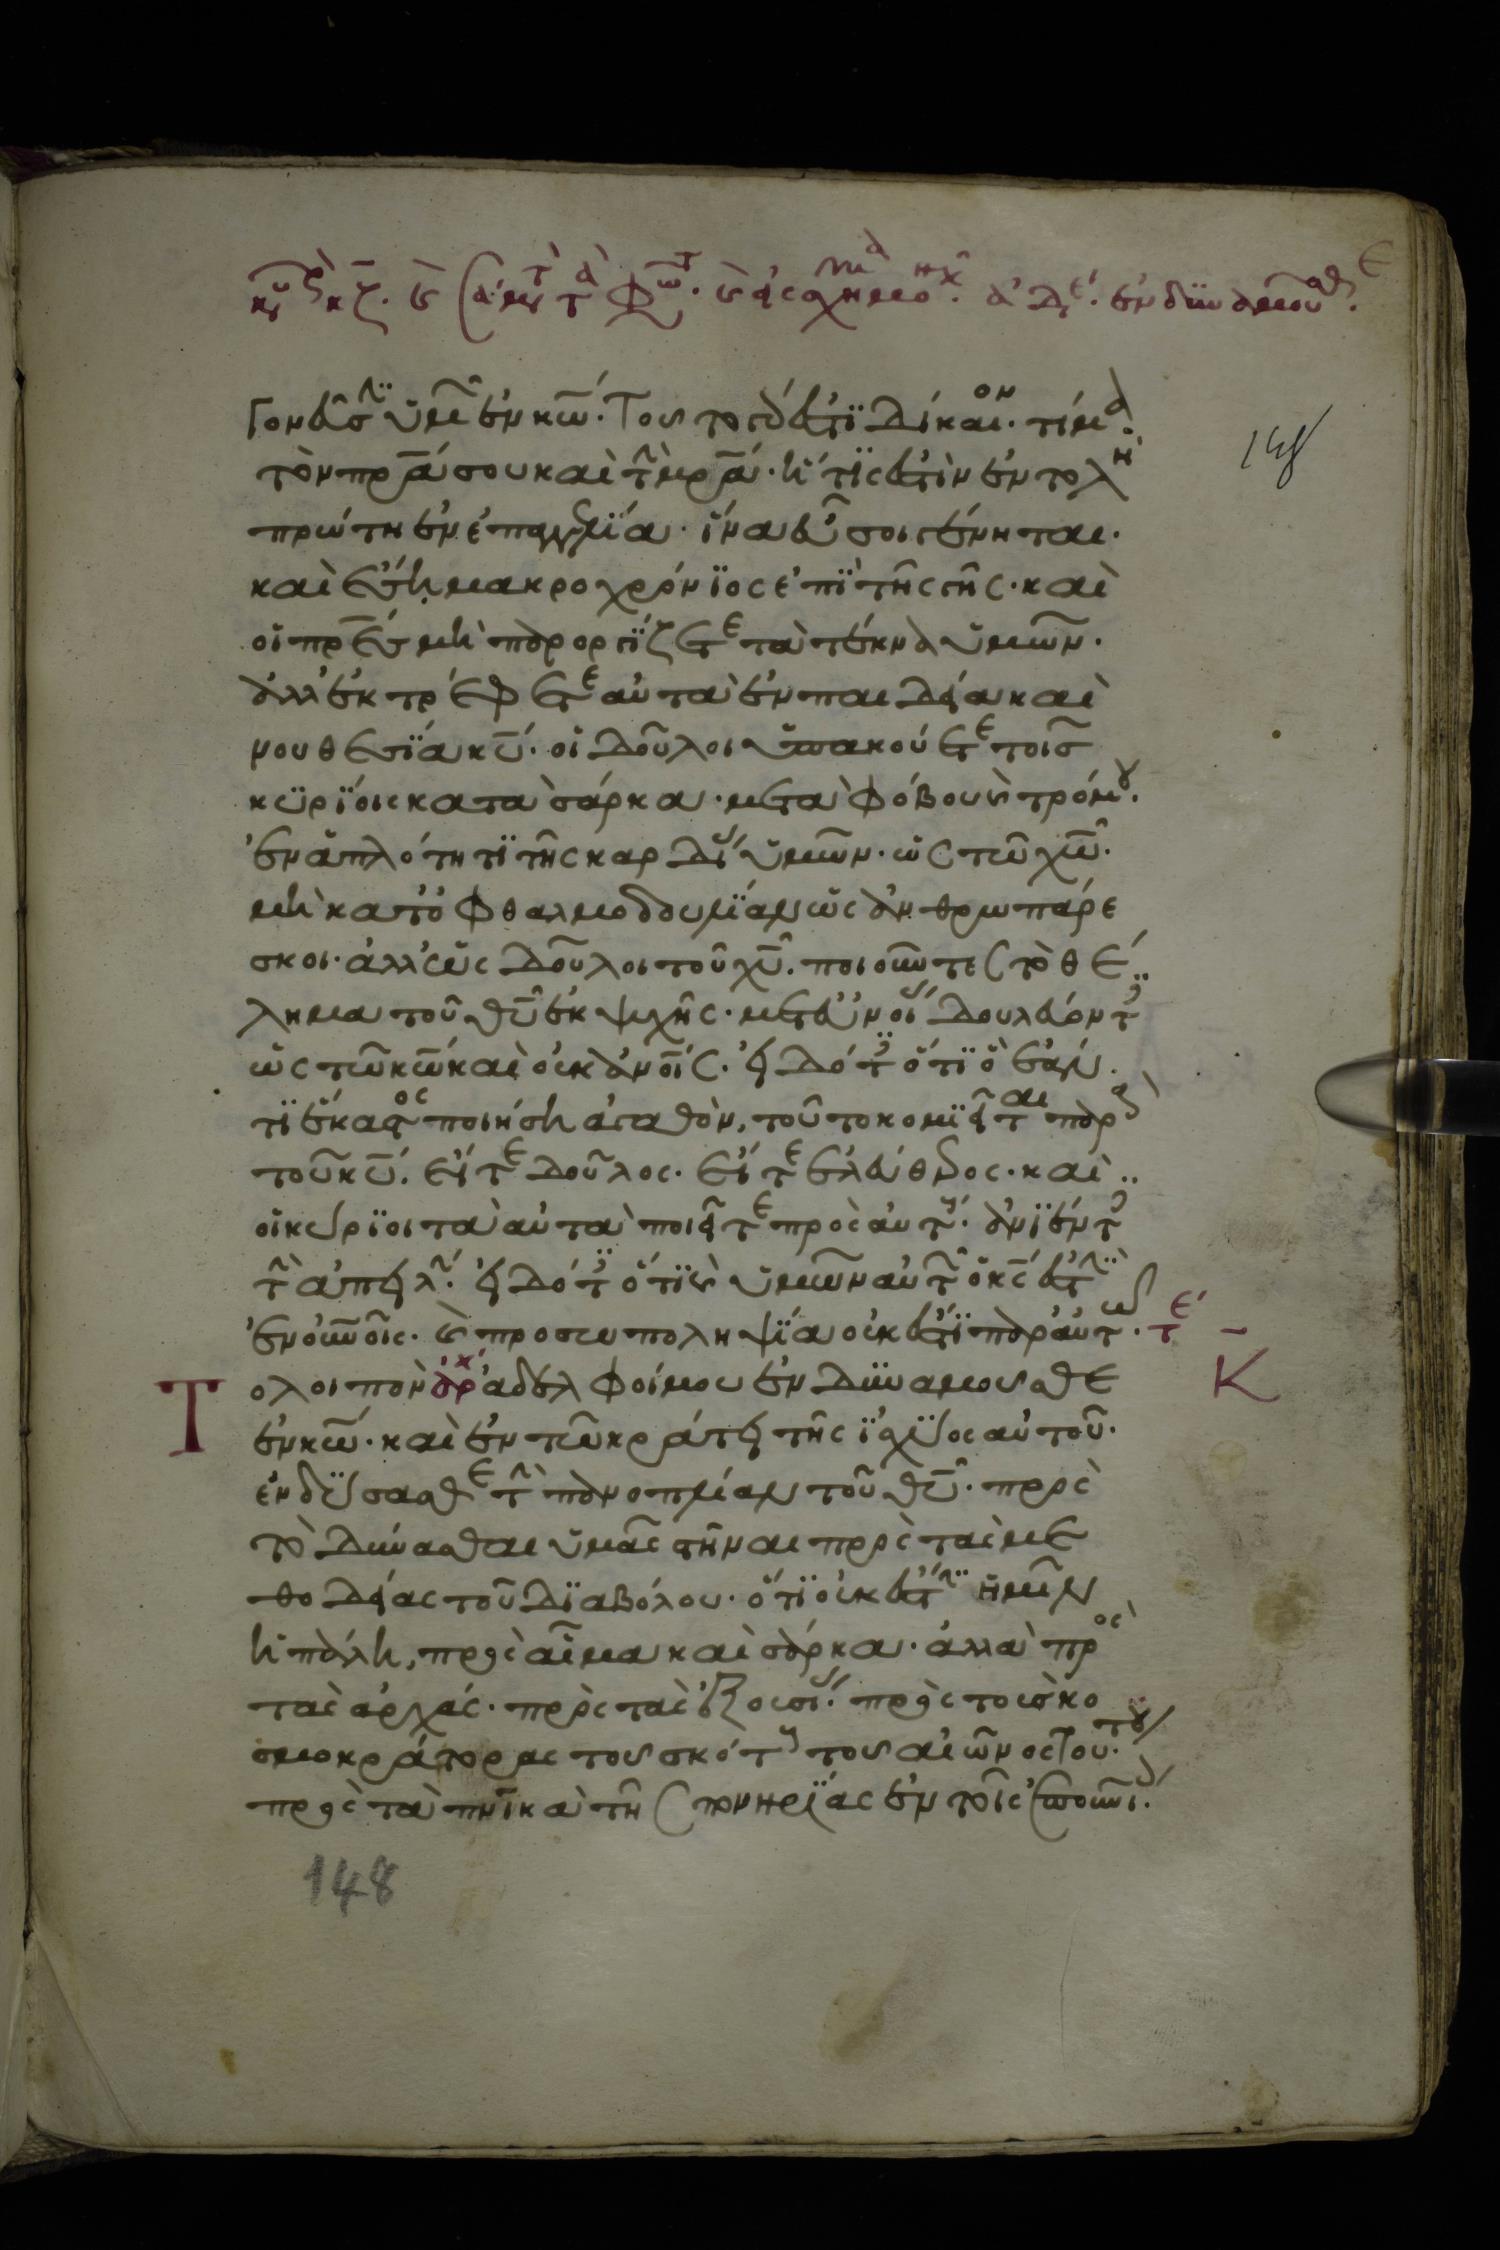 κυ κζ. κ σα μετ τ φω. κ εἰς σχημα μοναχ. ἀδε. ἐνδυναμουσθε
γονεῦσιν ὑμῶν ἐν κω. τοῦτο γάρ ἐστϊ δίκαιον. τίμα
τὸν πρα σου καὶ τὴν μρα. ἥτϊς ἐστὶν ἐντολὴ
πρώτη ἐν ἐπαγγελϊα. ἵνα εὖ σοι γένηται.
καὶ ἔση μακροχρόνϊος ἐπϊ τῆς γῆς. καὶ
οἱ πρες μὴ παροργϊζετε τὰ τέκνα ὑμῶν.
ἀλλ' ἐκτρέφετε αὐτὰ ἐν παιδεία καὶ
νουθεσϊα κυ. οἱ δοῦλοι ὑπακούετε τοῖς
κϋρϊοις κατὰ σάρκα. μετὰ φόβου κ τρόμου.
ἐν ἁπλότητϊ τῆς καρδίας ὑμῶν. ὡς τῶ χω.
μὴ κατ' ὀφθαλμοδουλϊαν ὡς ἀνθρωπάρε
σκοι. ἀλλ' ὡς δοῦλοι τοῦ χυ. ποιοῦντες τὸ θέ
λημα τοῦ θυ ἐκ ψυχῆς. μετ' εὐνοίας δουλεύοντες
ὡς τῶ κω καὶ οὐκ ἀνοις. εἰδότες ὅτϊ ὃ ἐάν
τϊ ἕκαστος ποιήση ἀγαθὸν, τοῦτο κομϊεῖται παρὰ
τοῦ κυ. εἴτε δοῦλος. εἴτε ἐλεύθερος. καὶ
οἱ κύρϊοι τὰ αὐτὰ ποιεῖτε πρὸς αὐτούς. ἀνϊέντες
τὴν ἀπειλήν. εἰδότες ὅτϊ κ ὑμῶν αὐτῶν ὁ κς ἐστὶν
ἐν οὐνοις. κ προσωποληψϊα οὐκ ἔστϊ παρ' αὐτῶ. τε
Τὸ λοιπὸν ἀρχ ἀδελφοί μου ἐνδυναμοῦσθε κ
ἐν κω. καὶ ἐν τῶ κράτει τῆς ϊσχύος αὐτοῦ.
ἐνδύσασθε τὴν πανοπλίαν τοῦ θυ. πρὸς
τὸ δύνασθαι ὑμᾶς στῆναι πρὸς τὰς με
θοδείας τοῦ δϊαβόλου. ὅτϊ οὐκ ἔστιν ἡμῖν
ἡ πάλη, πρὸς αἷμα καὶ σάρκα. ἀλλὰ πρὸς
τὰς ἀρχάς. πρὸς τὰς ἐξουσίας. πρὸς τοὺς κο
σμοκράτορας τοῦ σκότους τοῦ αἰῶνος τούτου.
πρὸς τὰ πνικὰ τῆς πονηρϊας ἐν τοῖς ἐπουνίοις.
148
148